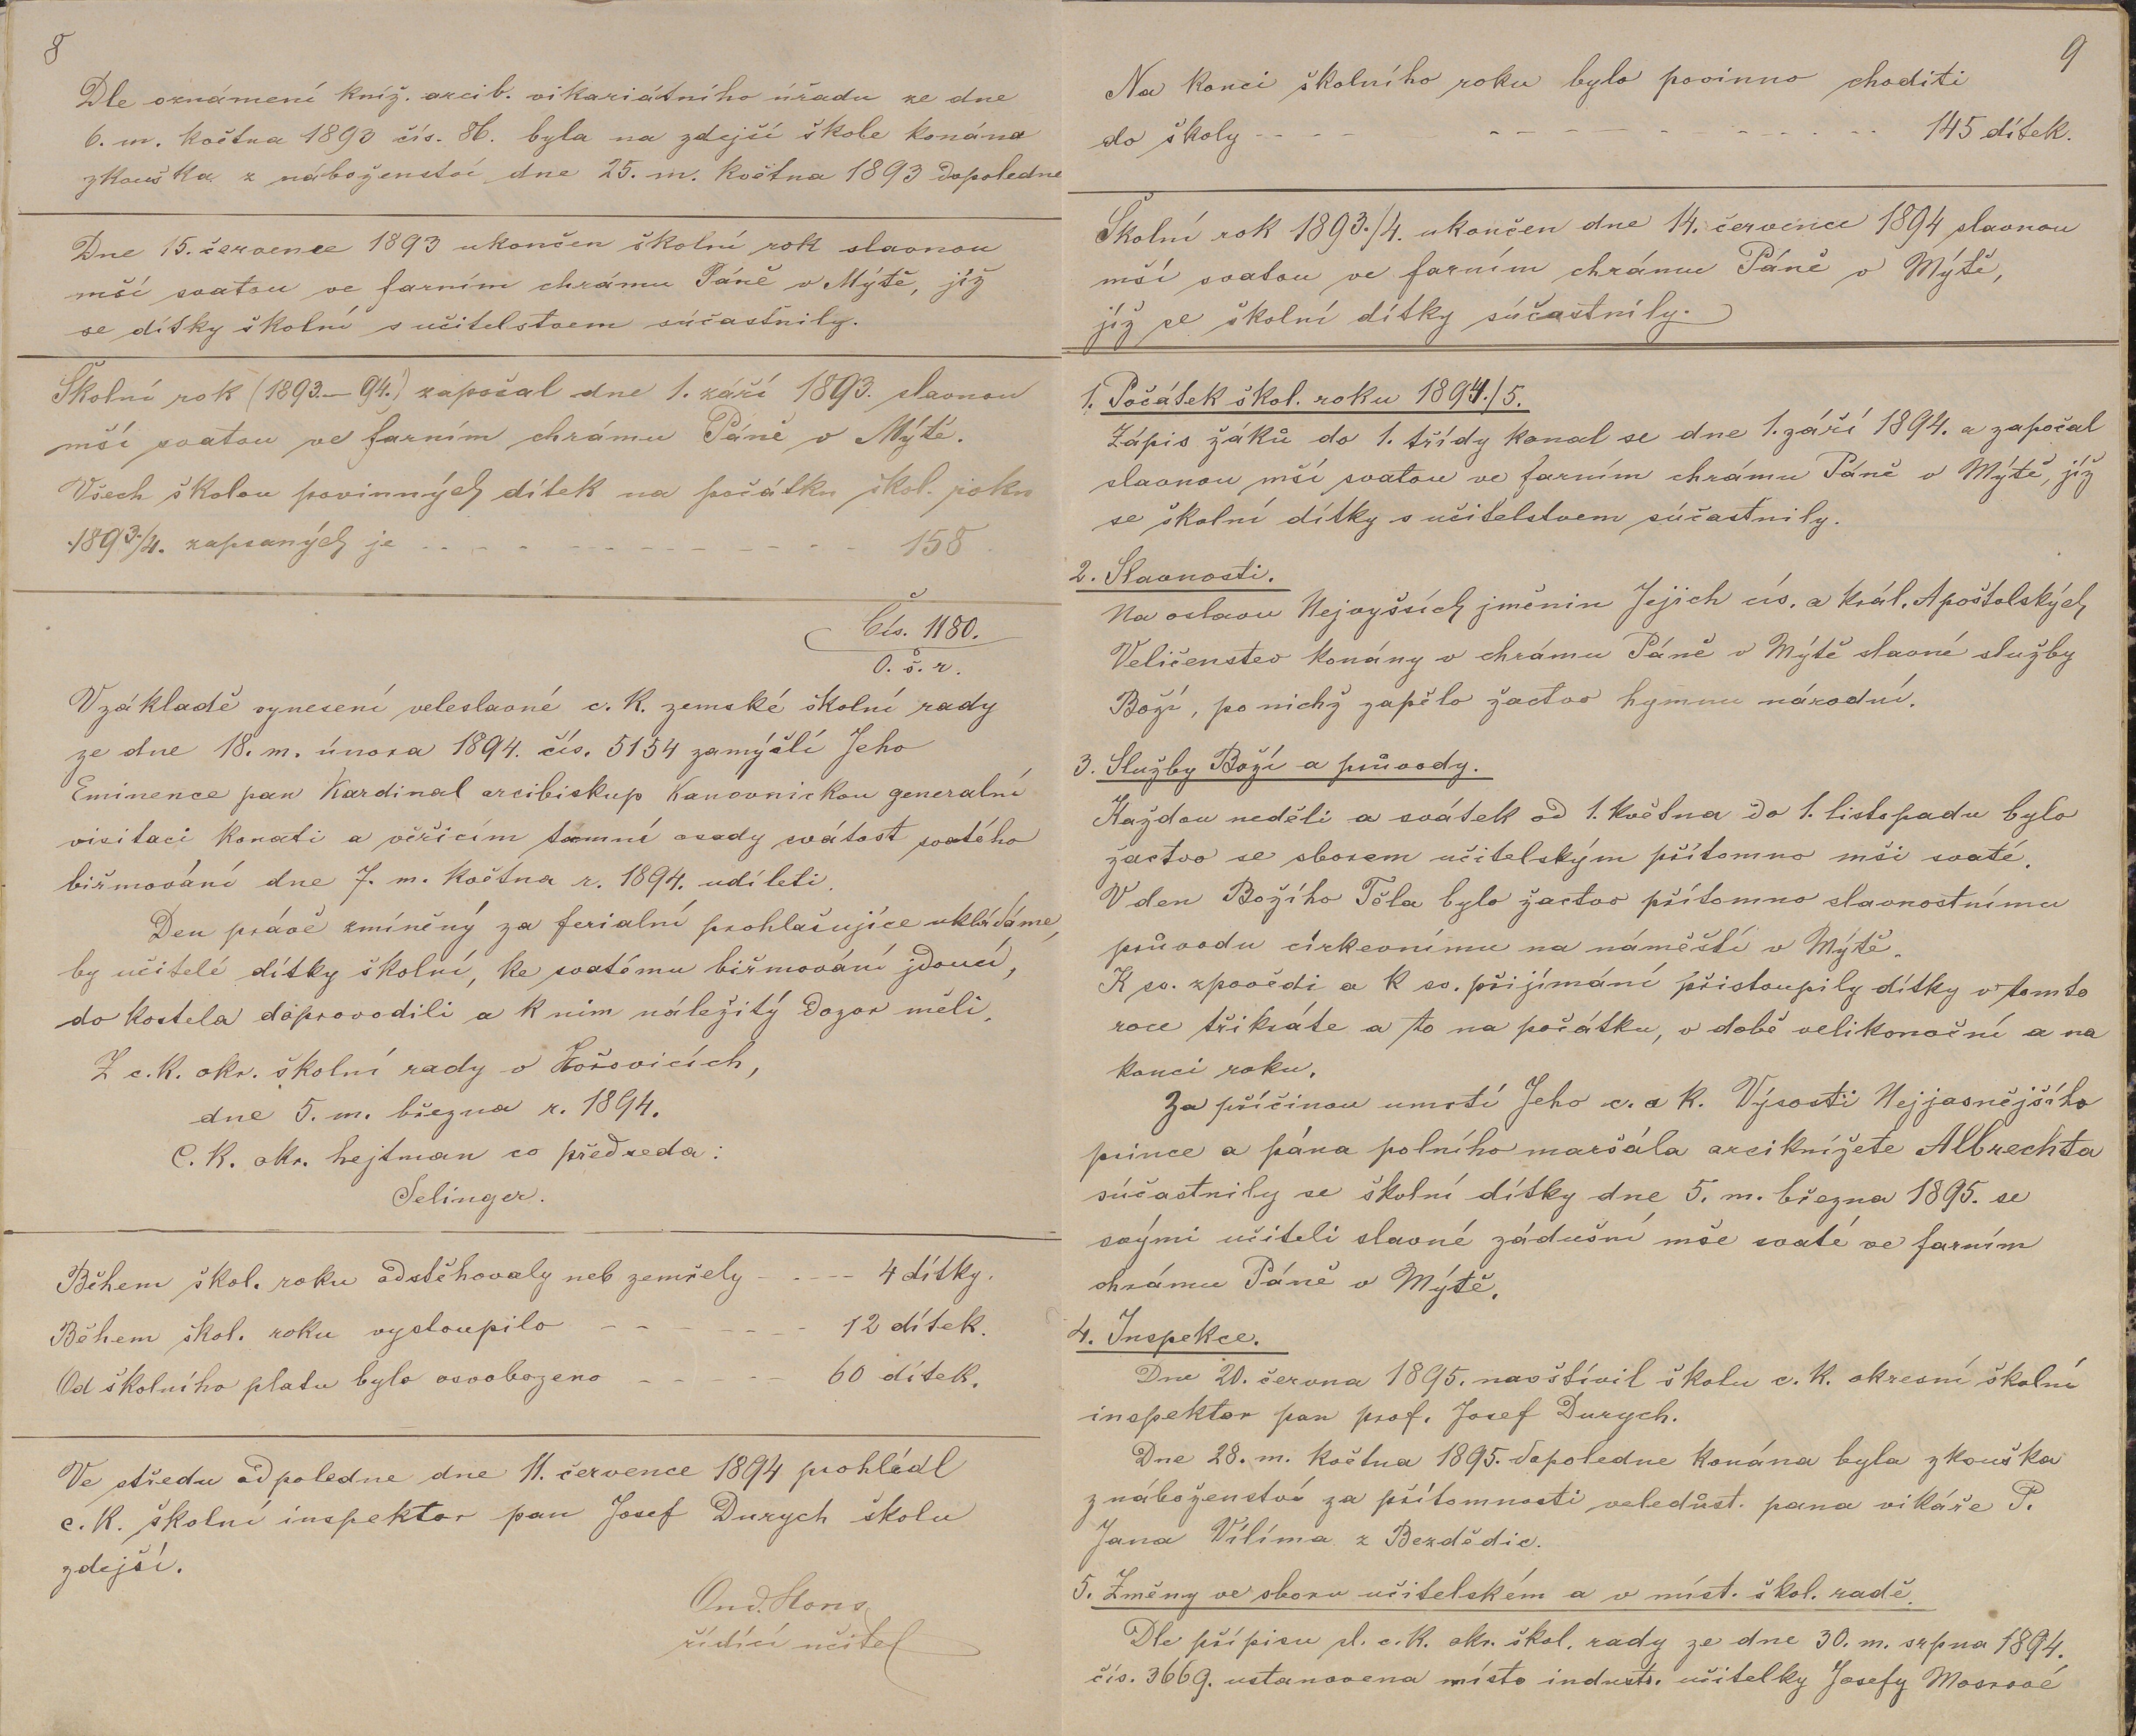 8
Dle oznámení kníž. arcib. vikariátního úřadu ze dne
6. m. května 1893 čís. 86. byla na zdejší škole konána
zkouška z náboženství dne 25. m. května 1893 dopoledne
Dne 15. července 1893 ukončen školní rok slavnou
mší svatou ve farním chrámu Páně v Mýtě, jíž
se dítky školní s učitelstvem súčastnily.
Školní rok (1893.–94.) započal dne 1. září 1893. slavnou
mší svatou ve farním chrámu Páně v Mýtě.
Všech školou povinných dítek na počátku škol. roku
1893./4. zapsaných je - - - - - - - - - - - 158
Čís. 1180.
O. š. r.
V základě vynesení veleslavné c. k. zemské školní rady
ze dne 18. m. února 1894. čís. 5154 zamýšlí Jeho
Eminence pan Kardinal arcibiskup kanovnickou generalní
visitaci konati a věřícím tamní osady svátost svatého
biřmování dne 7. m. května r. 1894. udíleti.
Den právě zmíněný za ferialní prohlašujíce ukládáme,
by učitelé dítky školní, ke svatému biřmování jdoucí,
do kostela doprovodili a k nim náležitý dozor měli.
Z c. k. okr. školní rady v Hořovicích,
dne 5. m. března r. 1894.
C. k. okr. hejtman co předseda:
Selinger.
Během škol. roku odstěhovaly neb zemřely - - - - 4 dítky.
Během škol. roku vystoupilo - - - - - - - 12 dítek.
Od školního platu bylo osvobozeno - - - - - 60 dítek.
Ve středu odpoledne dne 11. července 1894 prohlédl
c. k. školní inspektor pan Josef Durych školu
zdejší.
Ond. Hons
řídící učitel
9
Na konci školního roku bylo povinno choditi
do školy - - - - - - - - - - - - - - 145 dítek.
Školní rok 1893./4. ukončen dne 14. července 1894 slavnou
mší svatou ve farním chrámu Páně v Mýtě,
jíž se školní dítky súčastnily.
1. Počátek škol. roku 1894./5.
Zápis žáků do 1. třídy konal se dne 1. září 1894. a započal
slavnou mší svatou ve farním chrámu Páně v Mýtě, jíž
se školní dítky s učitelstvem súčastnily.
2. Slavnosti.
Na oslavu Nejvyšších jměnin Jejich cís. a král. Apoštolských
Veličenstev konány v chrámu Páně v Mýtě slavné služby
Boží, po nichž zapělo žactvo hymnu národní.
3. Služby Boží a průvody.
Každou neděli a svátek od 1. května do 1. listopadu bylo
žactvo se sborem učitelským přítomno mši svaté.
V den Božího Těla bylo žactvo přítomno slavnostnímu
průvodu církevnímu na náměstí v Mýtě.
K sv. zpovědi a k sv. přijímání přistoupily dítky v tomto
roce třikráte a to na počátku, v době velikonoční a na
konci roku.
Za příčinou umrtí Jeho c. a k. Výsosti Nejjasnějšího
prince a pána polního maršála arciknížete Albrechta
súčastnily se školní dítky dne 5. m. března 1895. se
svými učiteli slavné zádušní mše svaté ve farním
chrámu Páně v Mýtě.
4. Inspekce.
Dne 20. června 1895. navštívil školu c. k. okresní školní
inspektor pan prof. Josef Durych.
Dne 28. m. května 1895. dopoledne konána byla zkouška
z náboženství za přítomnosti veledůst. pana vikáře P.
Jana Vílíma z Bezdědic.
5. Změny ve sboru učitelském a v míst. škol. radě.
Dle přípisu sl. c. k. okr. škol. rady ze dne 30. m. srpna 1894.
čís. 3669. ustanovena místo industr. učitelky Josefy Mosrové